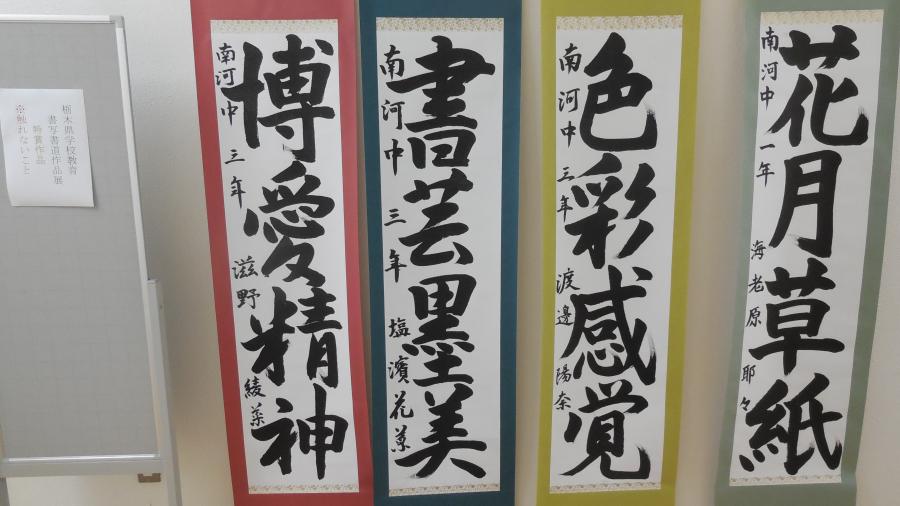 栃木県学校教育
書写書道作品展
特賞作品
※触れないこと
博愛精神
南河中 三年 滋野 綾菜
書芸墨美
南河中 三年 塩濱 花菜
色彩感覚
南河中 三年 渡邊 陽奈
花月草紙
南河中 一年 海老原 耶々